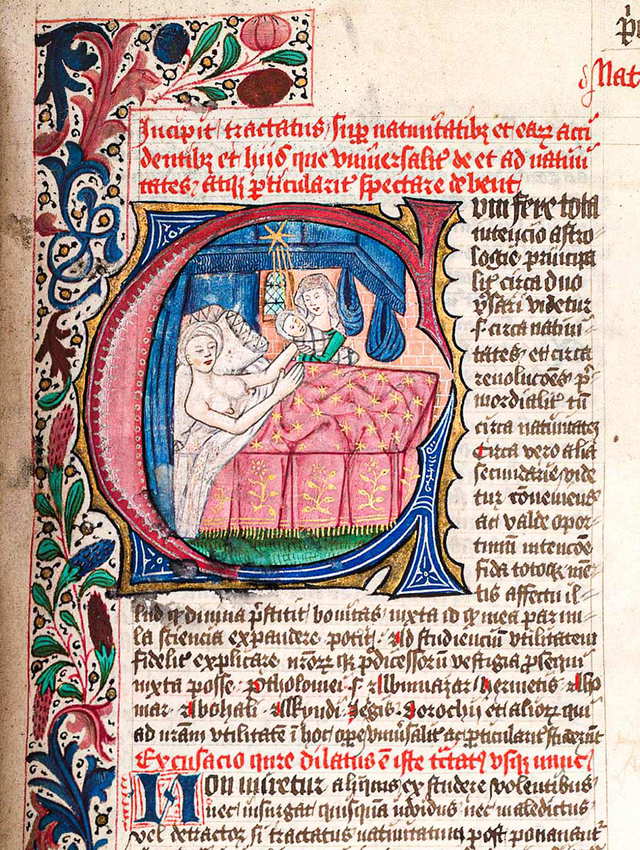 Incipit tractatus sup natiuitatibz et earz acci
dentibz et hijs que vniuersalit de et ad natiui
tates atqz pticularit spectare debent
Cum fere tota
intencio astro
logie principa
lit circa duo
vsari videtur
s circa natiui
tates et circa
reuoluciones
mordialit tn
circa natiuitates
Circa vero alia
secundarie vide
tur conueniens
ac valde opor
tunum intencione
fida totoqz men
tis affectu il
lud qd diuina pstitit bonitas iuxta id qd mea parui
la sciencia expandere potit Ad studencium vtilitatem
fidelit explicare nrorz qz pdecessorum vestigia psequi
iuxta posse ptholomei s Albumazar hermetis
mar Albohali Alkyndi Zegis Dorochij et aliorz qui
ad nram vtilitate i hoc ope vniuersalit ac pticularit
Excusacio qure dilatus e iste tctatus vsqz nunc
Non miretur aliquis ex studere volentibus
nec insurgat quisquam inuidus nec maledictus
vel detractor si tractatus natiuitatum post
Nat